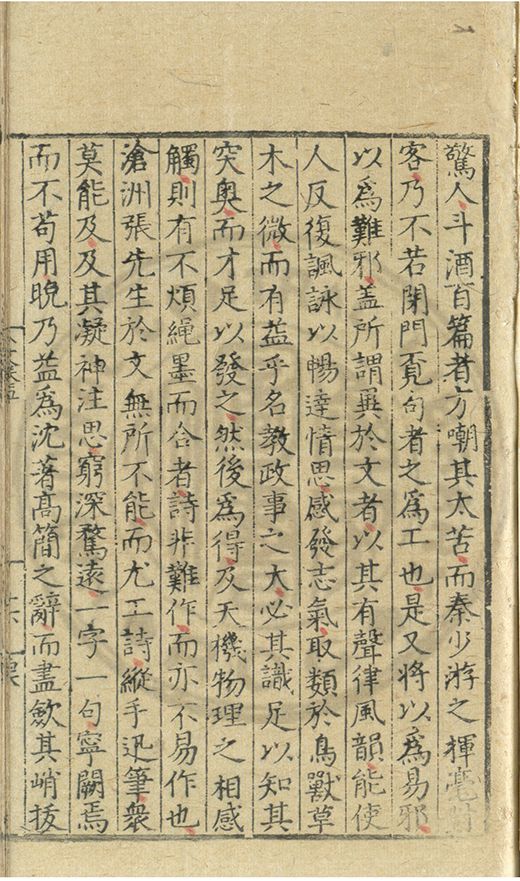 驚人斗酒百篇者方嘲其太苦而秦少游之揮毫對
客乃不若閉門覓句者之爲工也是又將以爲易邪
以爲難邪盖所謂異於文者以其有聲律風韻能使
人反復諷詠以暢達情思感發志氣取類於鳥獸草
木之微而有益乎名教政事之大必其識足以知其
突奥而才足以發之然後爲得及天機物理之相感
觸則有不煩繩墨而合者詩非難作而亦不易作也
滄洲張先生於文無所不能而尤工詩縱手迅筆衆
莫能及及其凝神注思窮深騖遠一字一句寧闕焉
而不苟用晚乃益爲沈著高簡之辭而盡歛其峭拔